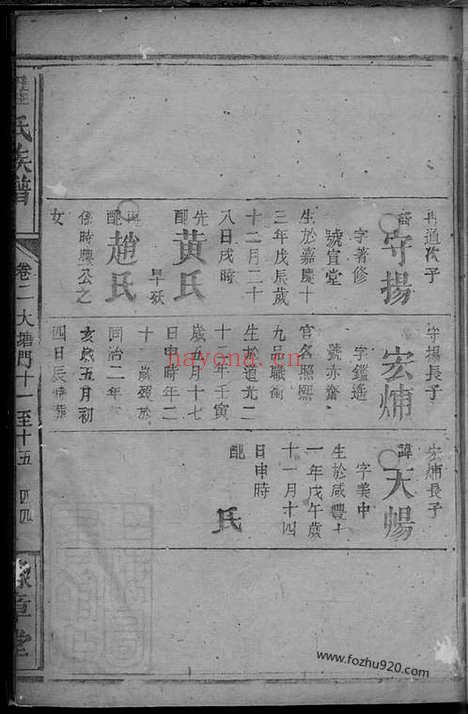 冉通次子
諱守揚
字著修
號宣堂
生於嘉慶十
三年戊辰歲
十二月二十
八日戌時
先配黃氏
早歿
配趙氏
係時興公之
女
守揚長子
宏煉
字鑑遙
號赤齋
官名照熙
九品職銜
生於道光二
十二年壬寅
歲五月十七
日申時年二
十歲歿於
同治二年
亥歲五月初
四日辰時葬
宏煉長子
諱天暢
字美中
生於咸豐十
一年戊午歲
十一月十四
日申時
配氏
氏族譜
卷二大塘門十一至十五
四四
豫章堂
hayona.cn
www.fozhu920.com